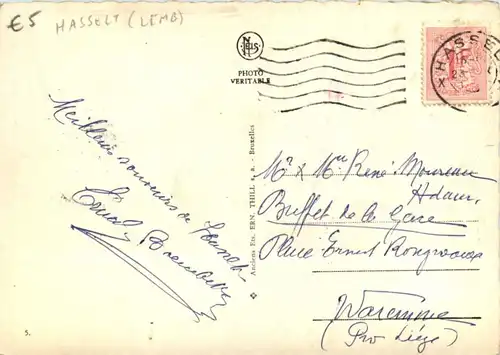 €5
HASSELT (LIMB)
NELS
PHOTO
VERITABLE
HASSEL
Meilleurs souvenirs de Hasselt
Anciens Ets. ERN. THILL s. a. - Bruxelles
Mr x Mme René Moureau
Adam,
Buffet de la Gare
Place Ernest Rongvaux
Waremme
(Pro Liège)
5.